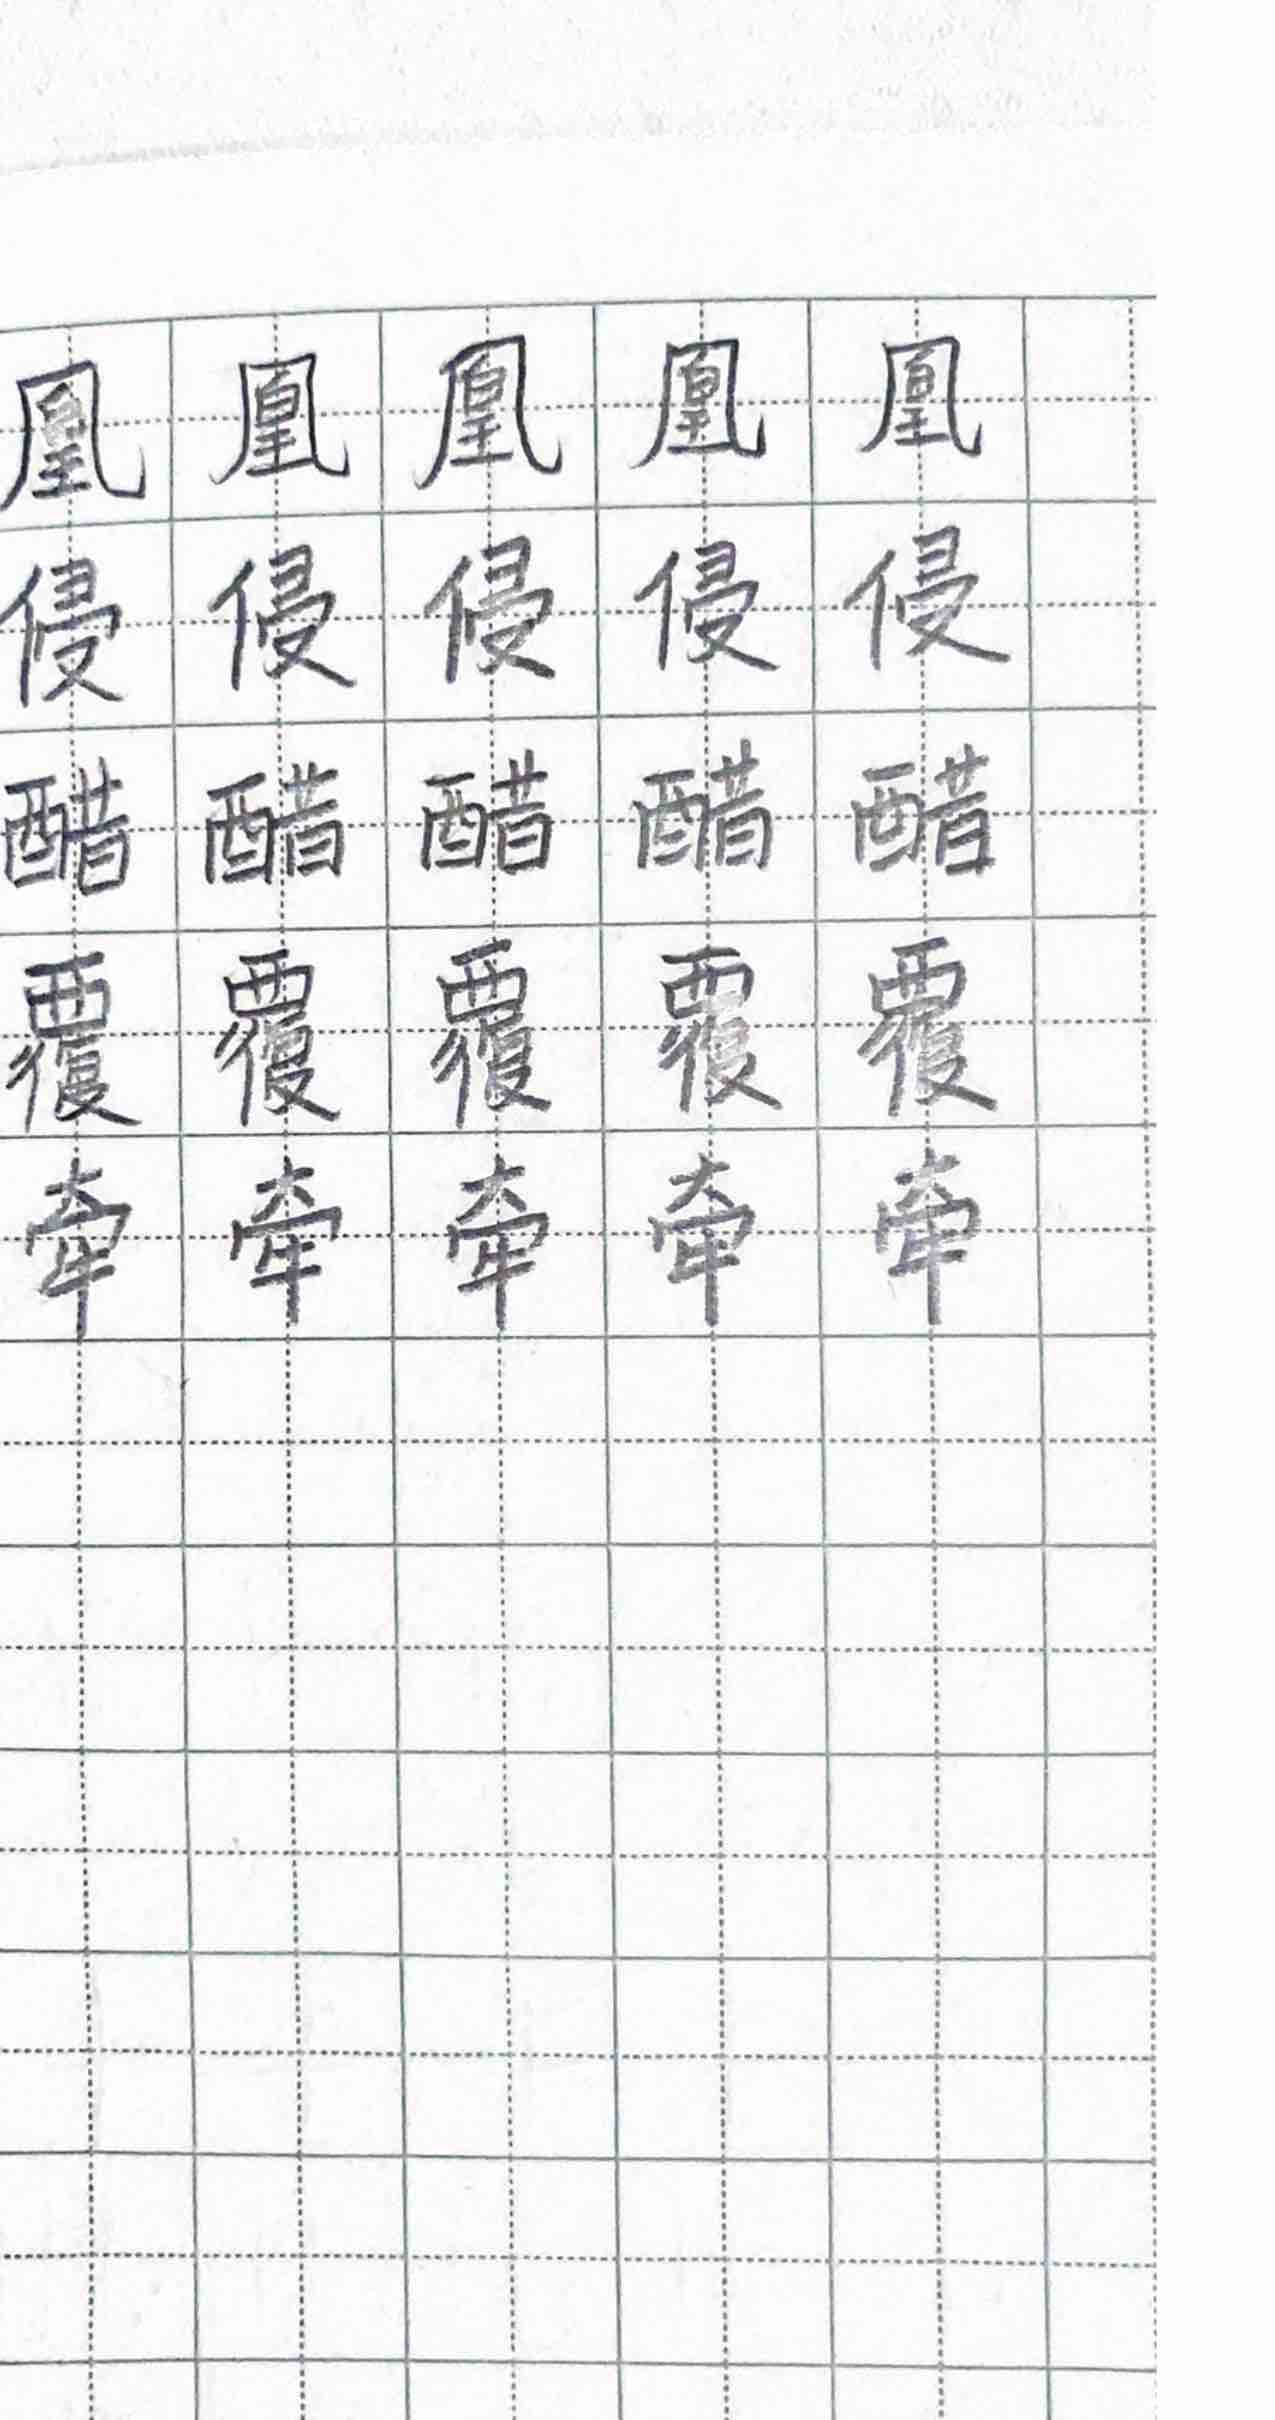 凰凰凰凰凰
侵侵侵侵侵
醋醋醋醋醋
覆覆覆覆覆
牵牵牵牵牵